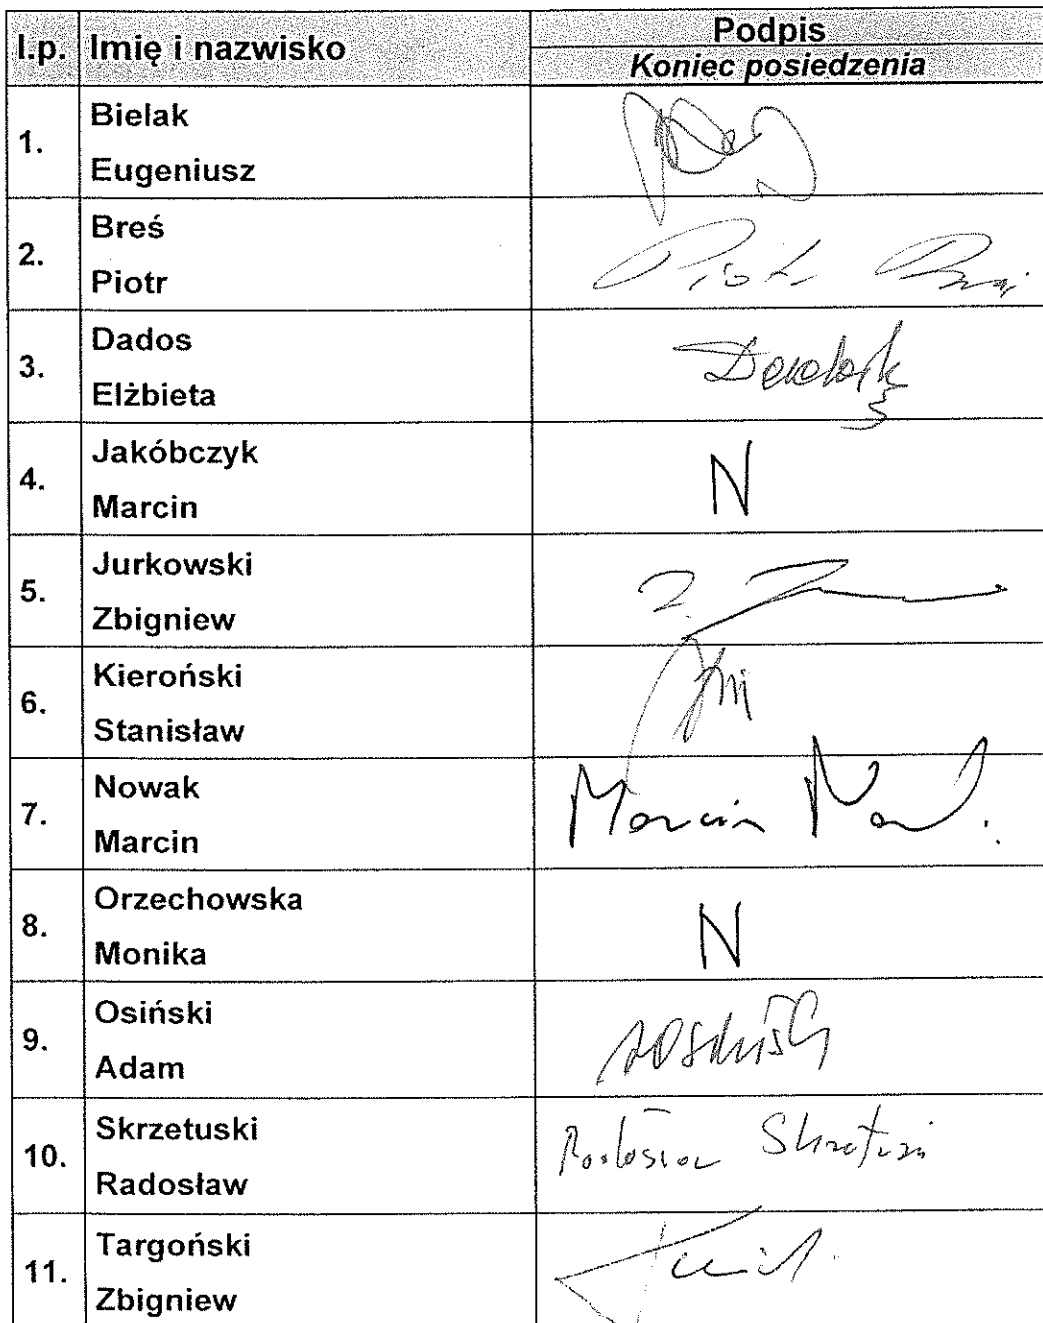 l.p. Imię i nazwisko Podpis
Koniec posiedzenia
1. Bielak
Eugeniusz
2. Breś
Piotr
Piotr
3. Dados
Elżbieta
4. Jakóbczyk
Marcin
N
5. Jurkowski
Zbigniew
Z.
6. Kieroński
Stanisław
7. Nowak
Marcin
Marcin
8. Orzechowska
Monika
N
9. Osiński
Adam
10. Skrzetuski
Radosław
11. Targoński
Zbigniew